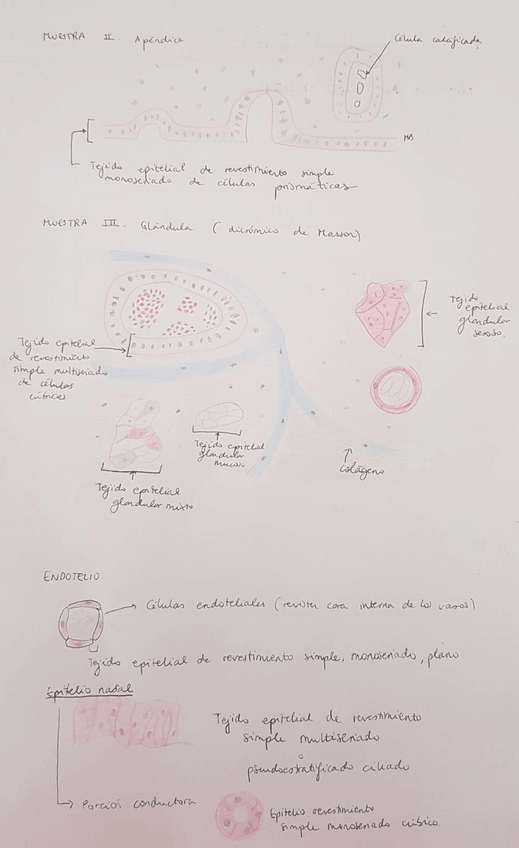 MUESTRA II. Apéndice
Célula caliciforme
MB
Tejido epitelial de revestimiento simple
monoseriado de células prismáticas
MUESTRA III. Glándula (tricrómico de Masson)
Tejido
epitelial
glandular
seroso.
Tejido epitelial
de revestimiento
simple multiseriado
de células
cúbicas
Tejido epitelial
glandular
mucoso
Colágeno
Tejido epitelial
glandular mixto
ENDOTELIO
Células endoteliales (revisten cara interna de los vasos)
Tejido epitelial de revestimiento simple, monoseriado, plano
Epitelio nasal
Tejido epitelial de revestimiento
simple multiseriado
o
pseudoestratificado ciliado
Porción conductora
Epitelio revestimiento
simple monoseriado cúbico.